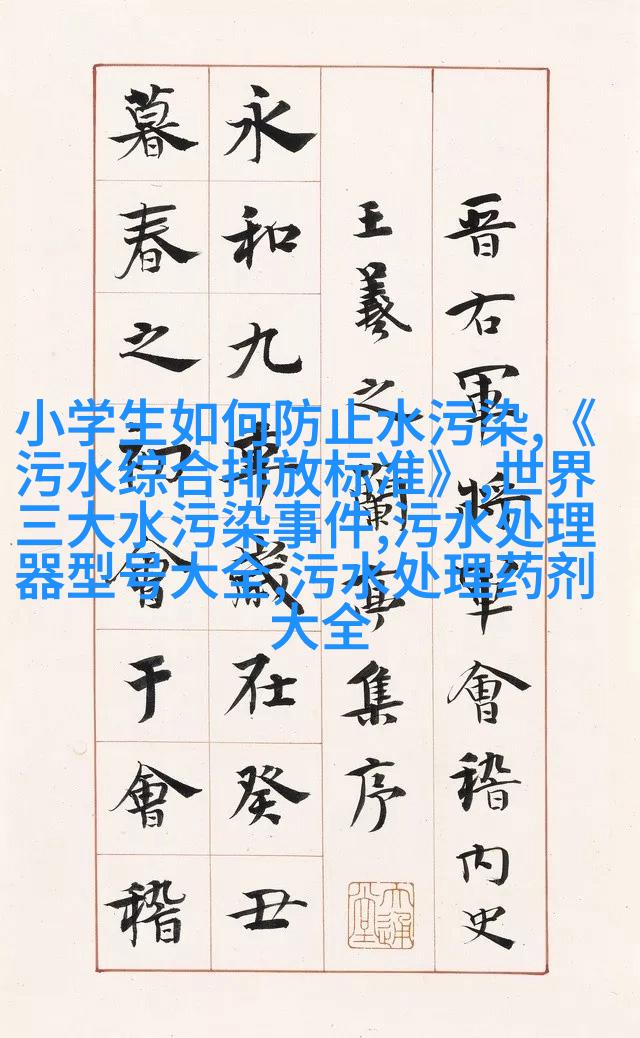 晋右軍將軍會稽内史
王羲之蘭亭集序
永和九年歲在癸丑
暮春之初會于會稽
小学生如何防止水污染,《
污水综合排放标准》,世界
三大水污染事件,污水处理
器型号大全,污水处理药剂
大全